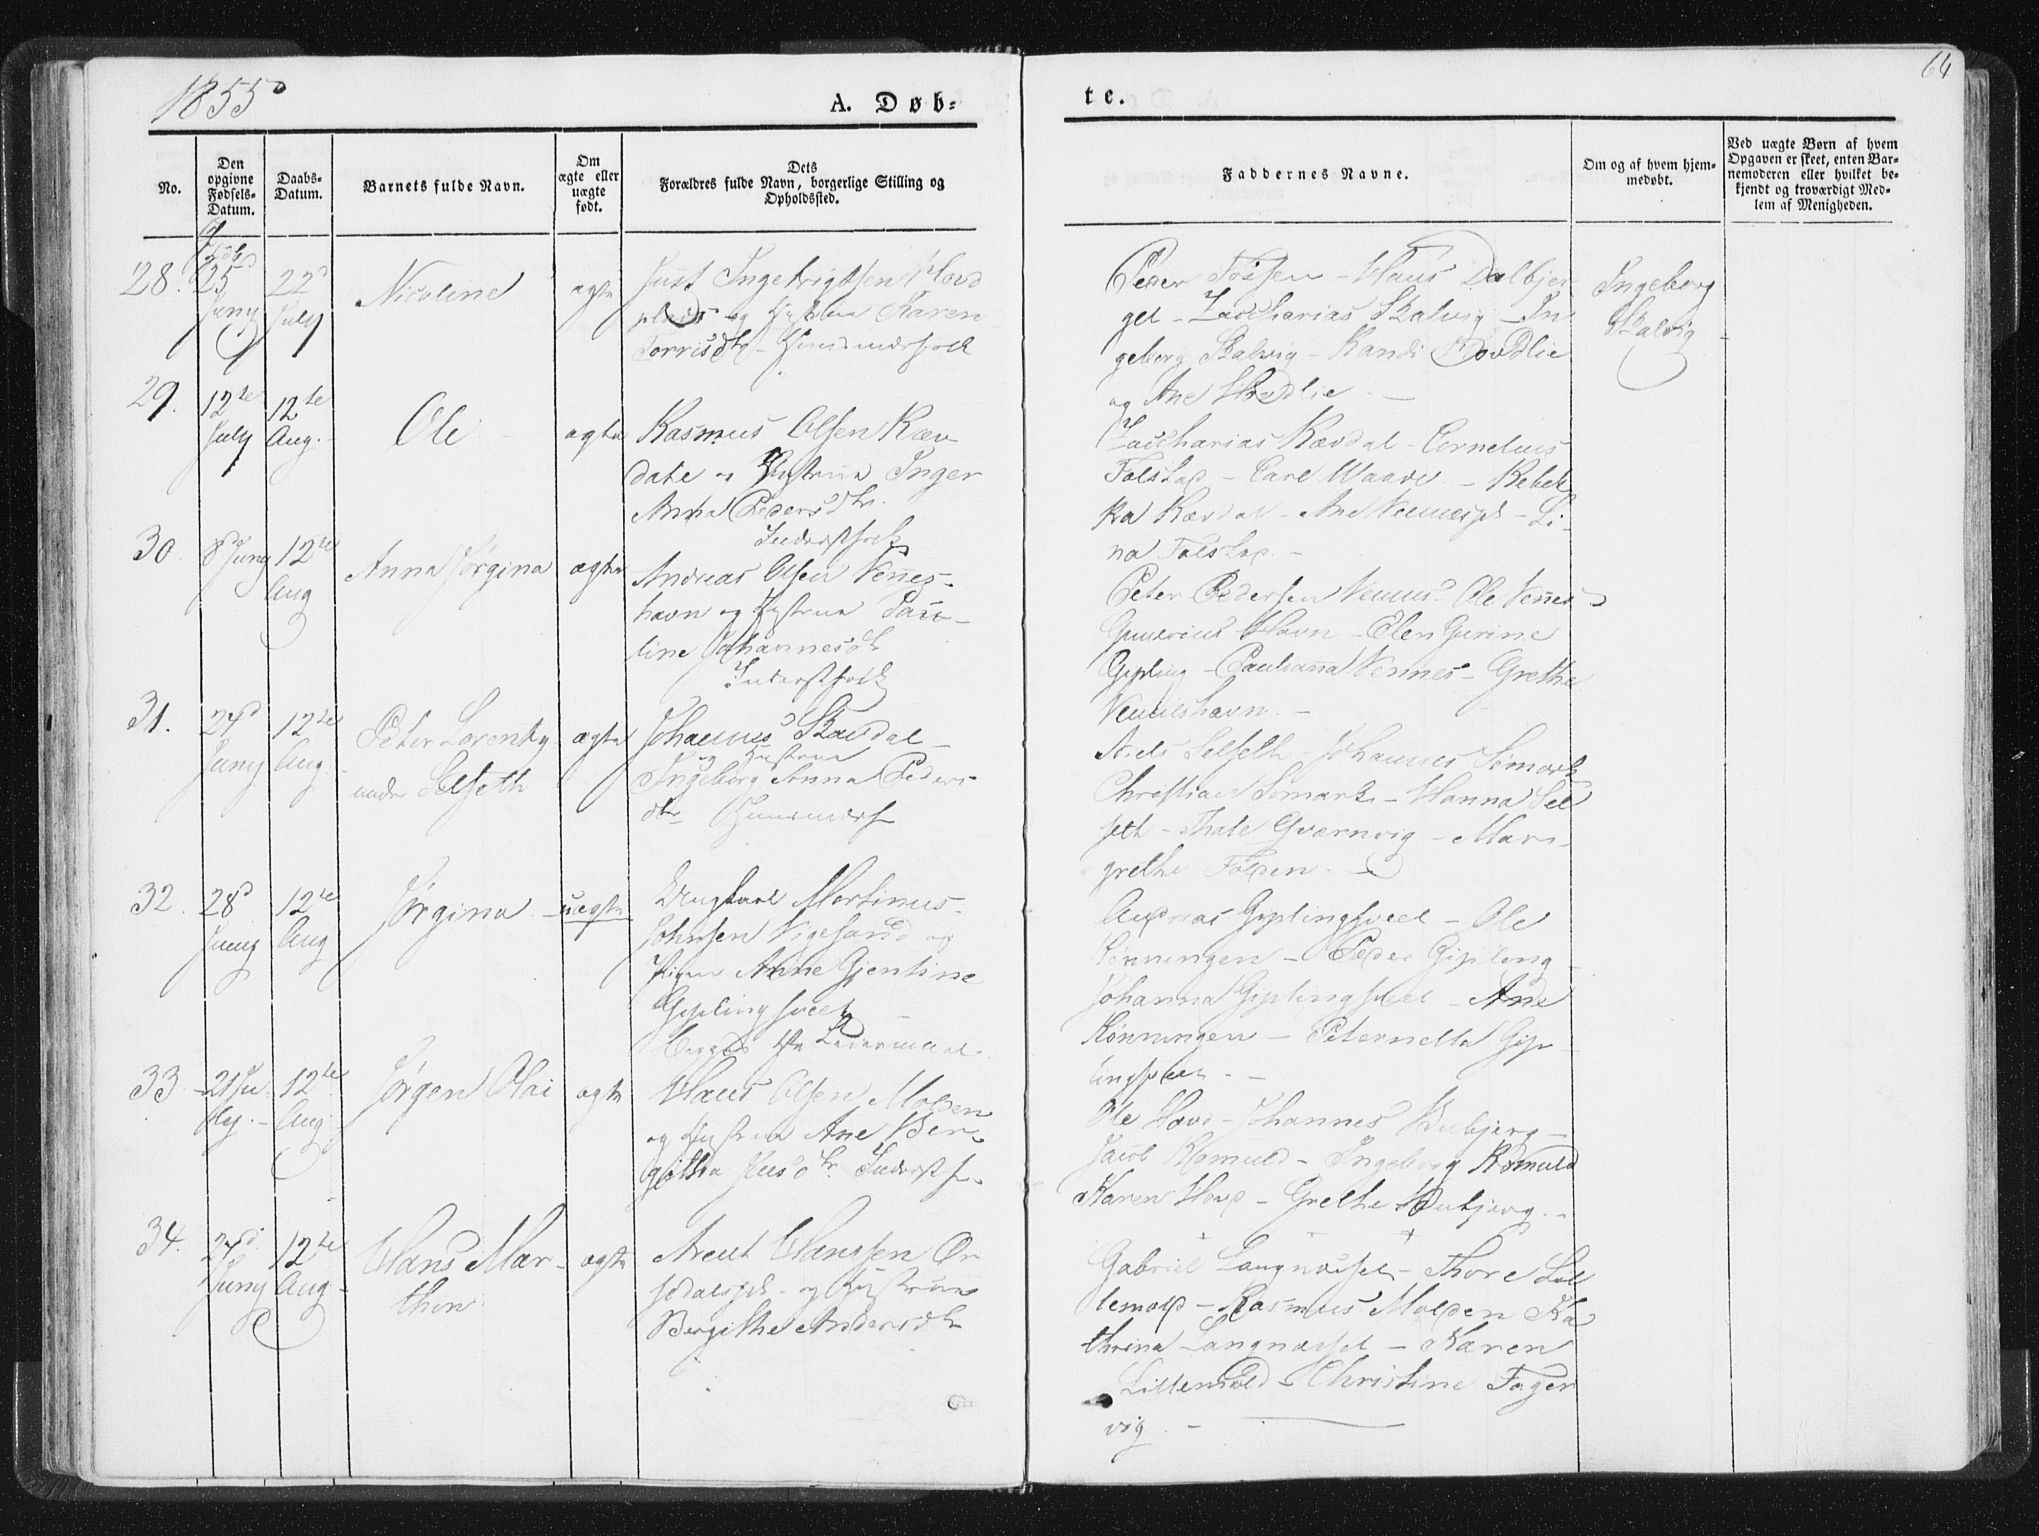 1855
A. Døb-
te.
64
No.
Den opgivne Fødsels-Datum.
Daabs-Datum.
Barnets fulde Navn.
Om ægte eller uægte født.
Dets
Forældres fulde Navn, borgerlige Stilling og
Opholdssted.
Faddernes Navne.
Om og af hvem hjem-
medøbt.
Ved uægte Børn af hvem
Opgaven er skeet, enten Bar-
nemoderen eller hvilket be-
kjendt og troværdigt Med-
lem af Menigheden.
28. 25 Juny
22 July
Nicoline
ægte
Just Ingebrigtsen Hovd
plads og Hustrue Karen
Torrisdtr
Peder - Hans Dalbjer
get - Zaccharias Skalvig - In
geborg Skalvig - Randi Hovdlie
og Ane Hovdlie -
Ingeborg
Skalvig
29. 12te July
12te Aug.
Ole
ægte
Rasmus Olsen Ræv
dale og Hustrue Inger
Anna Pedersdtr
Inderstfolk
Zaccharias Rævdal - Cornelius
Falstad - Carl Waade - Rebek
ka Rævdal - Ane - Li-
na Falstad -
30. 8d Juny
12te Aug
Anna Jørgina
ægte
Andreas Olsen Vennes-
havn og Hustrue Pau-
line Johannesdtr
Inderstfolk
Peter Pedersen Vennes - Ole Vennes
Havn - Elen Gurine
Gipling - Paulianna Vennes - Grethe
Venneshavn -
31. 24d Juny
12te Aug
Peter Lorents
under Selseth
ægte
Johannes
og Hustrue
Ingeborg Anna Peders-
dtr
Niels Selseth - Johannes Somark
Christian Somark - Hanna Sel
seth - Thale Qvernvig - Mar-
grethe
32. 28d Juny
12te Aug
Jørgina
uægte
Ungkarl Martinus
Johnsen Vigesand og
Pigen Anne Gjertine
Giplingsveet
Begges 1te Leiermaal
Andreas Giplingsveet - Ole
Rønningen - Peder Gipling
Johanna Giplingsveet - Ane
Rønningen - Peternella Gip
lingsveet -
33. 21 Ju-
ly -
12te Aug
Jørgen Olai
ægte
Hans Olsen Molden
og Hustrue Ane Ber-
githa dtr. Inderstf.
Ole Hovd - Johannes Bubjerg -
Jacob Romuld - Ingeborg Romuld
Karen Hovd - Grethe Bubjerg -
34. 24d Juny
12te Aug -
Hans Mar-
thon
ægte
Arent Hanssen Or
sdalspl. og Hustrue
Bergithe Andersdtr
Gabriel Langnæsset - Thore Lil
lemold - Rasmus Molden Ka
thrina Langnæsset - Karen
Lillemold - Christine Fager
vig -